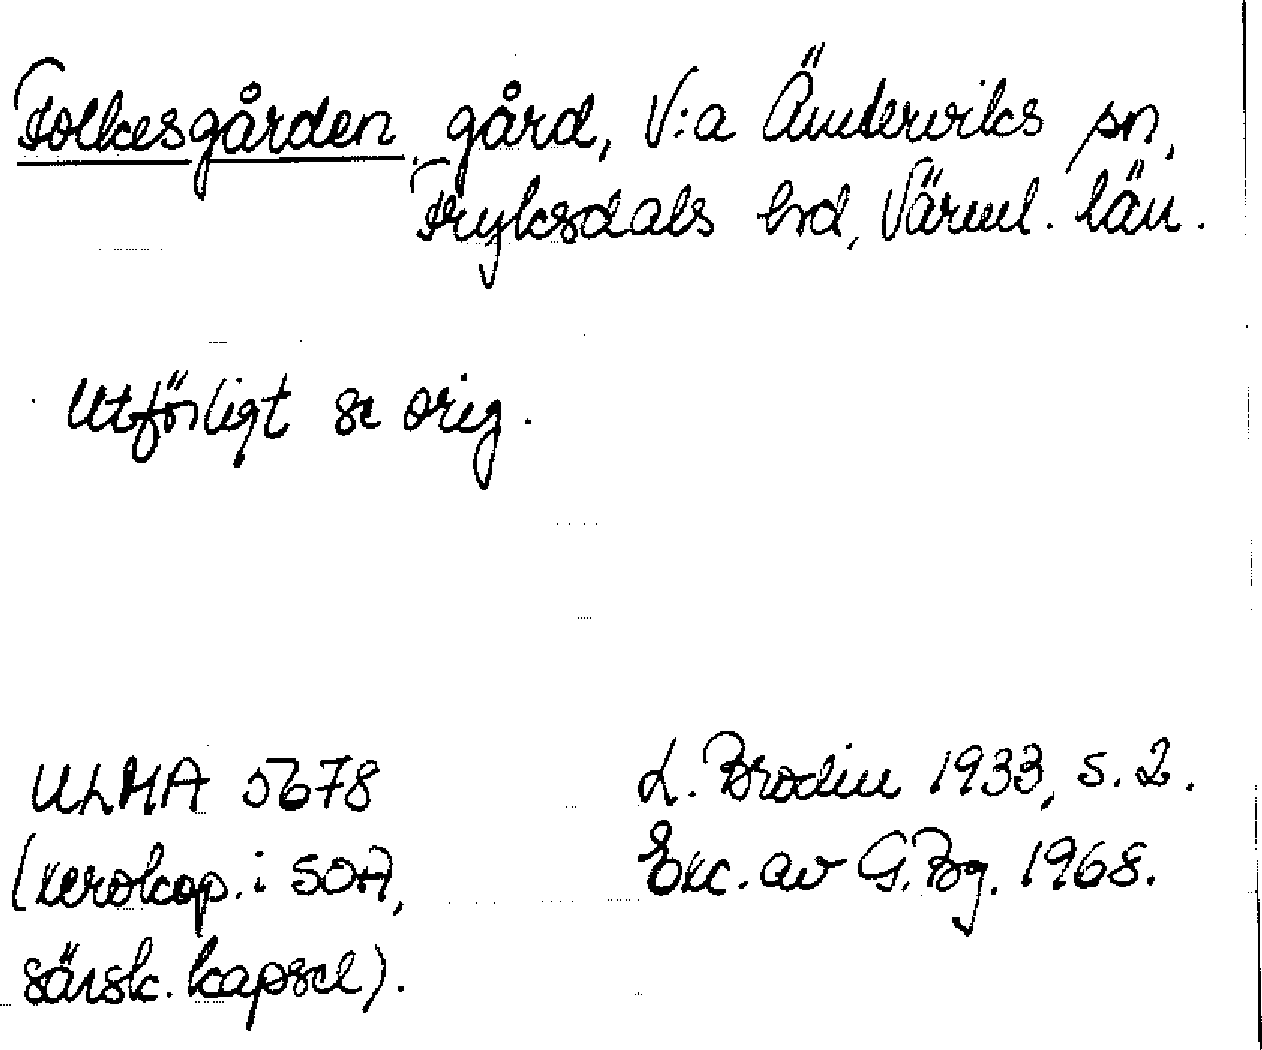 Folkesgården gård, V:a Ämterviks sn,
Fryksdals hd, Värml. län.
Utförligt se orig.
ULMA 5678
(xerokop. i SOA,
särsk. kapsel).
L. Brodin 1933, s. 2.
Exc. av G. Bg. 1968.